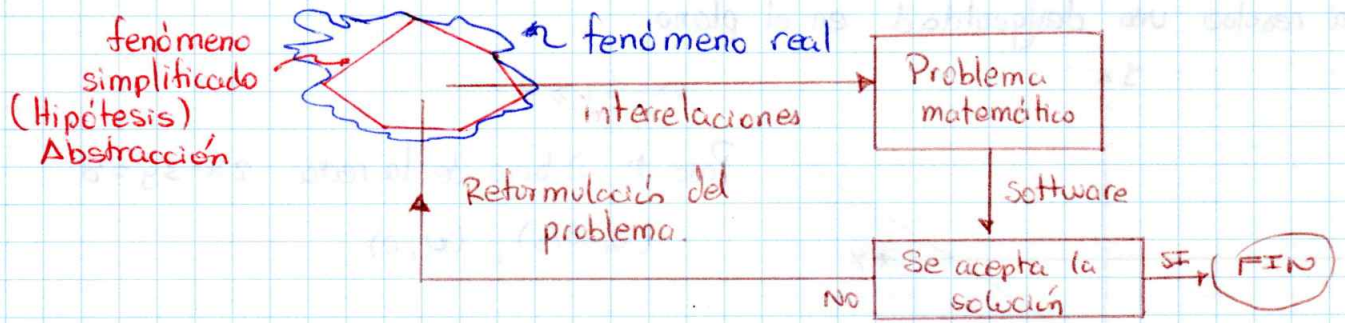 fenómeno
simplificado
(Hipótesis)
Abstracción
fenómeno real
interrelaciones
Problema
matemático
software
Reformulación del
problema.
Se acepta la
solución
SI
FIN
NO